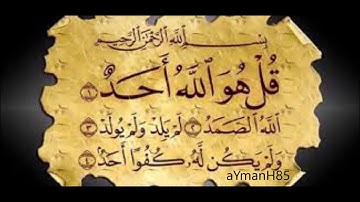 بِسْمِ اللَّهِ الرَّحْمَٰنِ الرَّحِيمِ
قُلْ هُوَ اللَّهُ أَحَدٌ ١
اللَّهُ الصَّمَدُ ٢ لَمْ يَلِدْ وَلَمْ يُولَدْ ٣
وَلَمْ يَكُن لَّهُ كُفُوًا أَحَدٌ ٤
aYmanH85